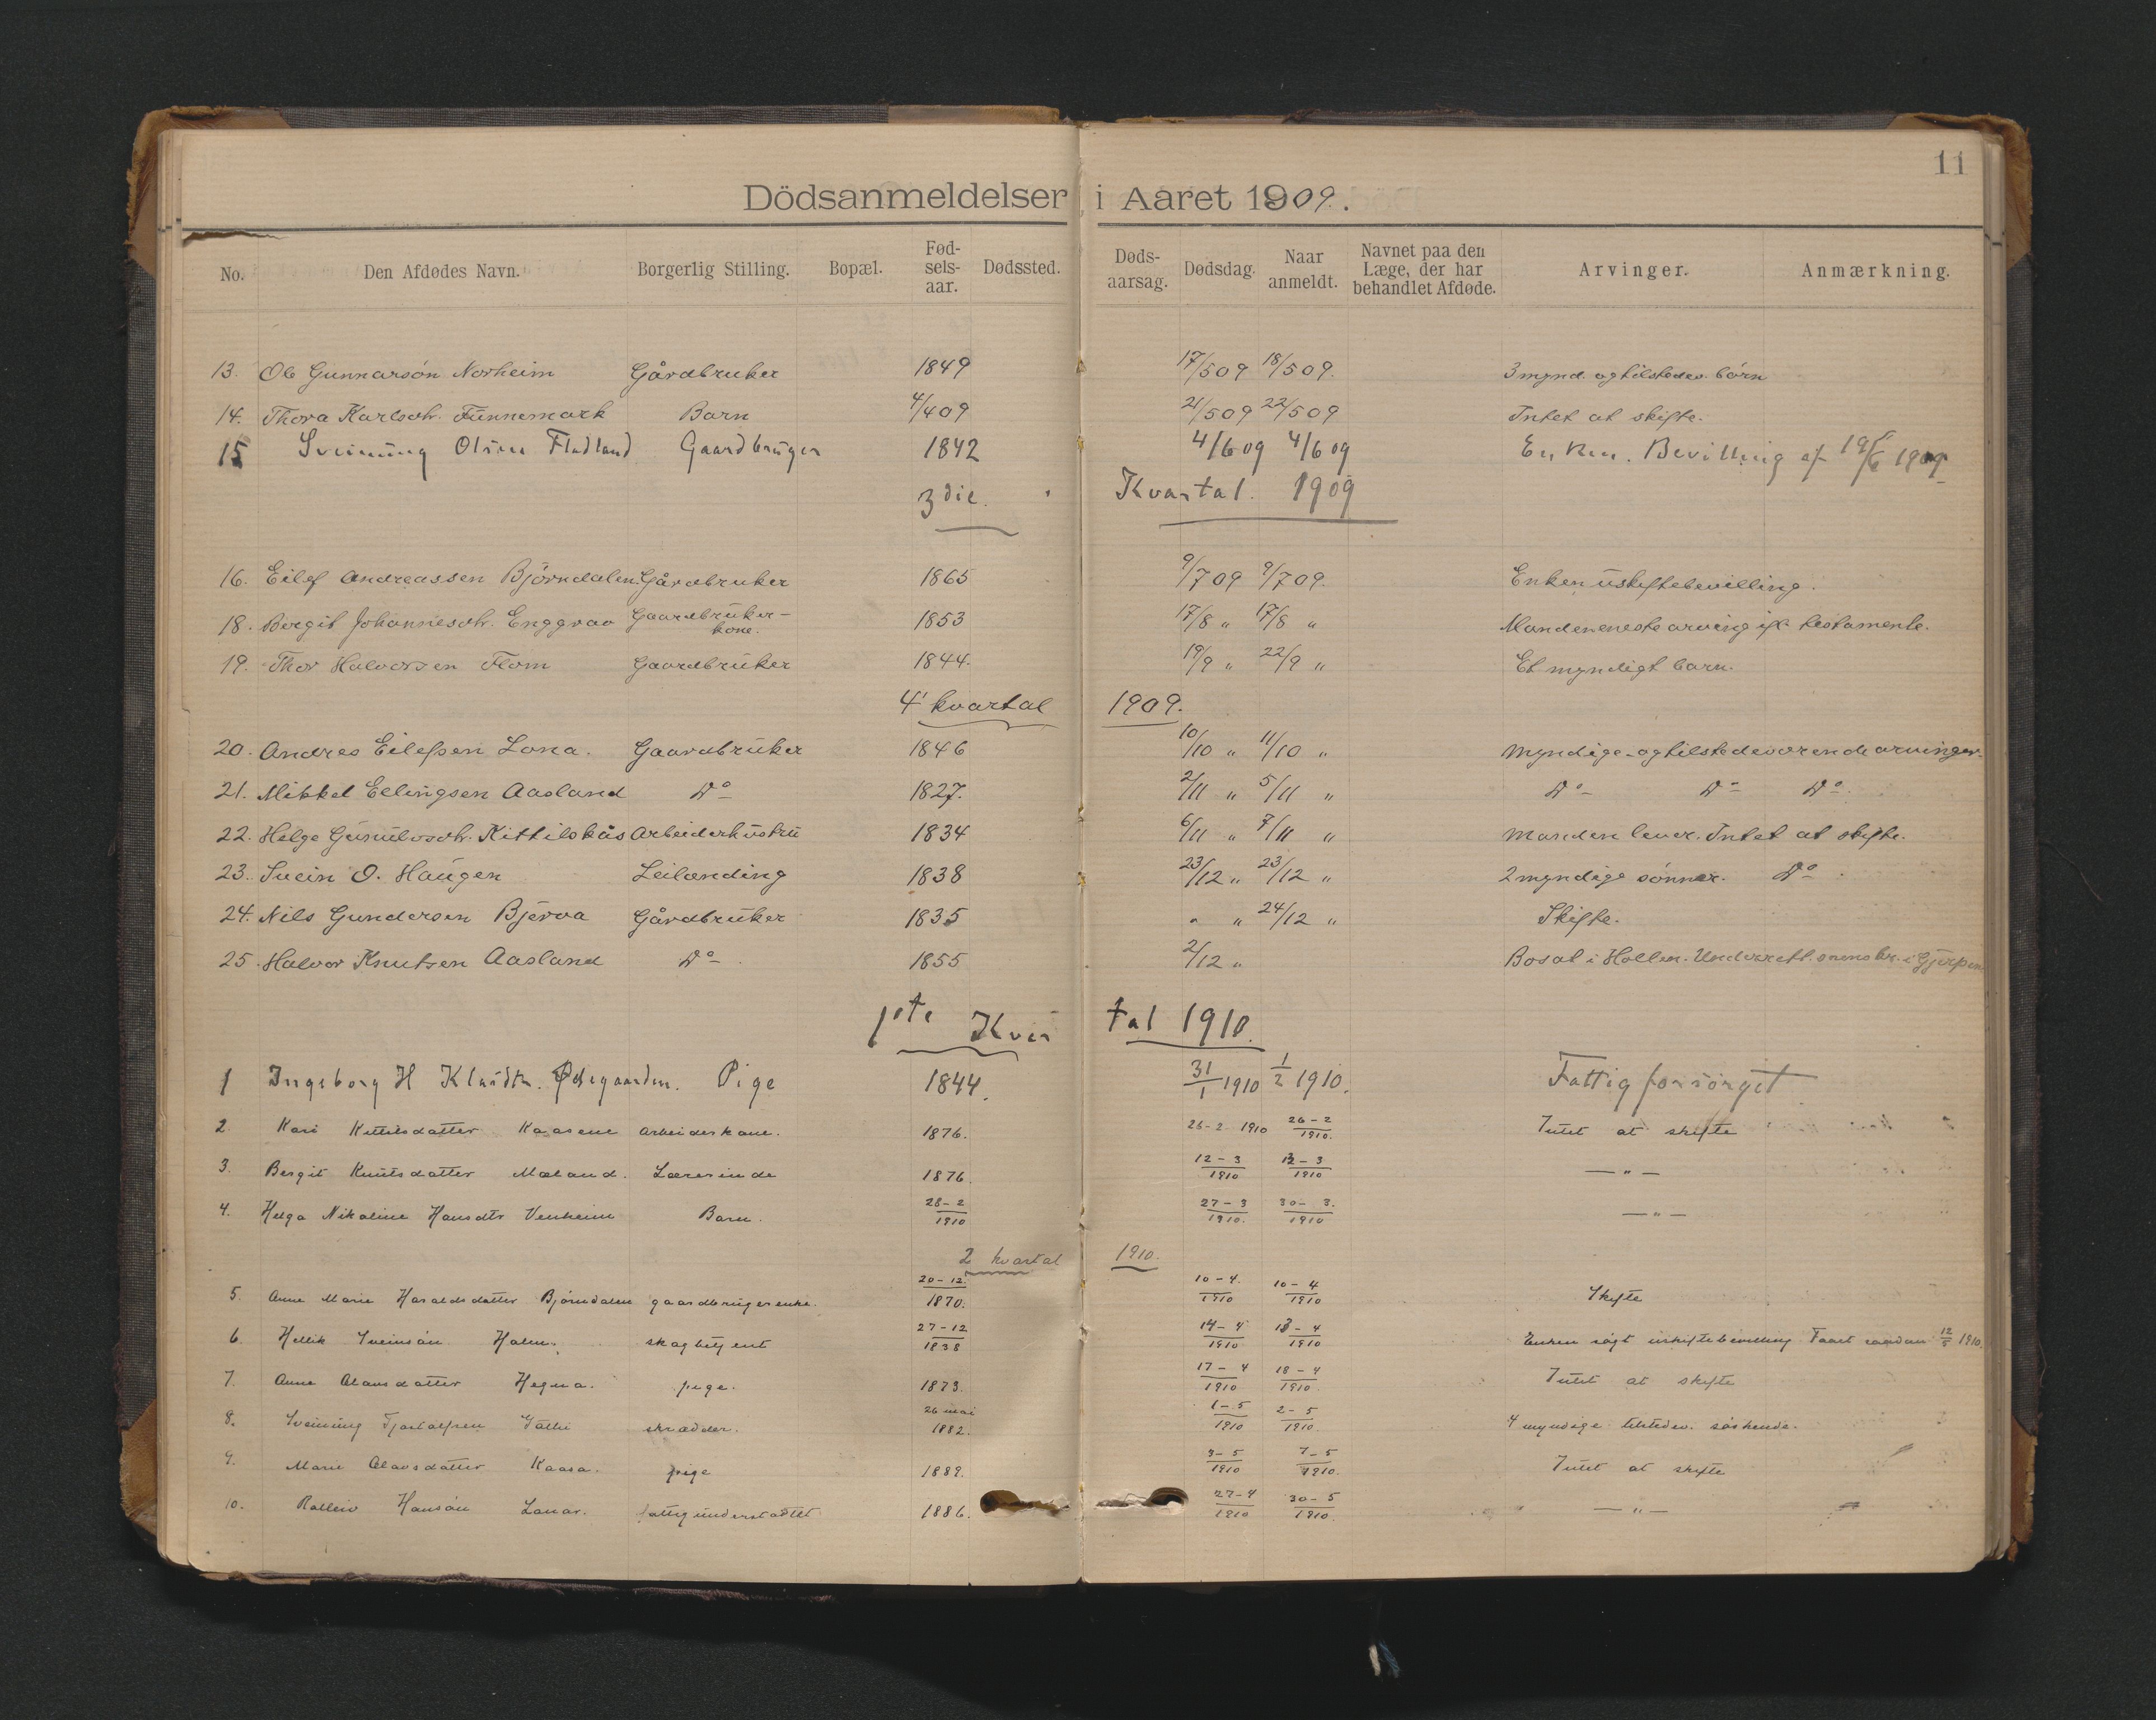 11
Dödsanmeldelser i Aaret 1909.
No. Den Afdødes Navn. Borgerlig Stilling. Bopæl. Fød-sels-aar. Dødssted. Døds-aarsag. Dødsdag. Naar anmeldt. Navnet paa den Læge, der har behandlet Afdøde. Arvinger. Anmærkning.
13. Ole Gunnarsön Norheim Gårdbruker 1849 17/5 09 18/5 09. 3 mynd. og tilstedev. börn
14. Thora Karlsdtr. Funnemark Barn 4/4 09 21/5 09 22/5 09 Intet at skifte.
15 Sveinung Olsen Fladland Gaardbruger 1842 4/6 09 4/6 09 Enken. Bevilling af 19/6 1909
3die. Kvartal. 1909
16. Eilef Andreassen Björndalen Gårdbruker 1865 9/7 09 9/7 09. Enken uskiftebevilling.
18. Bergit Johannesdtr. Enggrav Gaardbruker-kone. 1853 17/8 " 17/8 " Manden eneste arving ifl. testamente.
19. Thor Halvorsen Flom Gaardbruker 1844. 19/9 " 22/9 " Et myndigt barn.
4' kvartal 1909.
20. Andres Eilefsen Lona. Gaardbruker 1846 10/10 " 11/10 " Myndige og tilstedeværende arvinger.
21. Mikkel Ellingsen Aasland Do 1827. 2/11 " 5/11 " Do Do Do.
22. Helge Gunulvsdtr. Kittilskås Arbeiderhustru 1834 6/11 " 7/11 " Manden lever. Intet at skifte.
23. Svein O. Haugen Leilænding 1838 23/12 " 23/12 " 2 myndige sönner. Do.
24. Nils Gundersen Bjerva Gårdbruker 1835 " " 24/12 " Skifte.
25. Halvor Knutsen Aasland Do. 1855 2/12 " Bosat i Hollen. Underrett. i Gjerpen
1ste Kvar tal 1910.
1 Ingeborg H Ødegaarden. Pige 1844. 31/1 1910 1/2 1910. Fattigforsörget
2 Kari Kittilsdatter Kaasene arbeiderkone. 1876. 26-2 1910 26-2 1910. Intet at skifte
3. Bergit Knutsdatter Mæland. Lærerinde 1876. 12-3 1910 12-3 1910 — " —
4. Helga Nikoline Hansdtr Venheim Barn. 28-2 1910 27-3 1910. 30-3. 1910 — " —
2 kvartal 1910.
5. Anne Marie Haraldsdatter Björndalen gaardbrugerenke. 20-12. 1870. 10-4. 1910 10-4 1910 Skifte
6. Hellik Sveinsön Holm. skogbetjent 27-12 1838 14-4 1910 18-4 1910 Enken sögt uskiftebevilling Faaet saadan 12/5 1910.
7. Anne Olavsdatter Hegna. pige. 1873. 17-4 1910 18-4 1910. Intet at skifte
8. Sveinung Tjostolfsen skrædder. 26 mai 1882. 1-5 1910 2-5 1910. 4 myndige tilstedev. söskende.
9. Marie Olavsdatter Kaasa. pige 1889. 3-5 1910 7-5 1910. Intet at skifte
10. Rolleiv Hansön Lonar. fattigunderstöttet 1886. 27-4 1910 30-5 1910. — " —